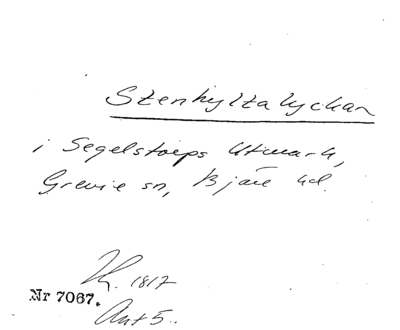 Stenhyltalyckan
i Segelstorps Utmark,
Grevie sn, Bjäre hd.
1817
Nr 7067.
Akt 5..